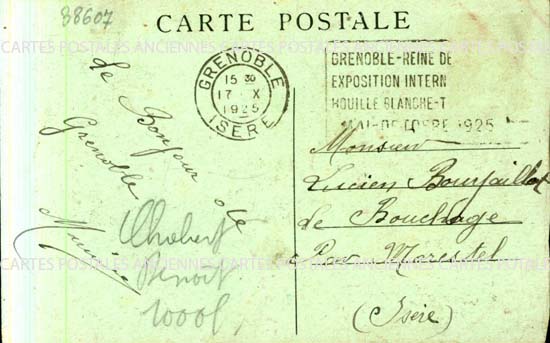 88607
CARTE POSTALE
CARTES POSTALES ANCIENNES CARTES POSTALES ANCIENNES CARTES POSTALES
GRENOBLE
15 30
17 - X
1925
ISERE
GRENOBLE-REINE DE
EXPOSITION INTERN
HOUILLE BLANCHE-T
MAI-OCTOBRE 1925
Le Bonjour de
Grenoble
Monsieur
Lucien Bourjaillat
Le Bouchage
Par Morestel
(Isère)
Chobert
Benoit
1000f
CARTES POSTALES ANCIENNES CARTES POSTALES ANCIENNES CARTES POSTALES